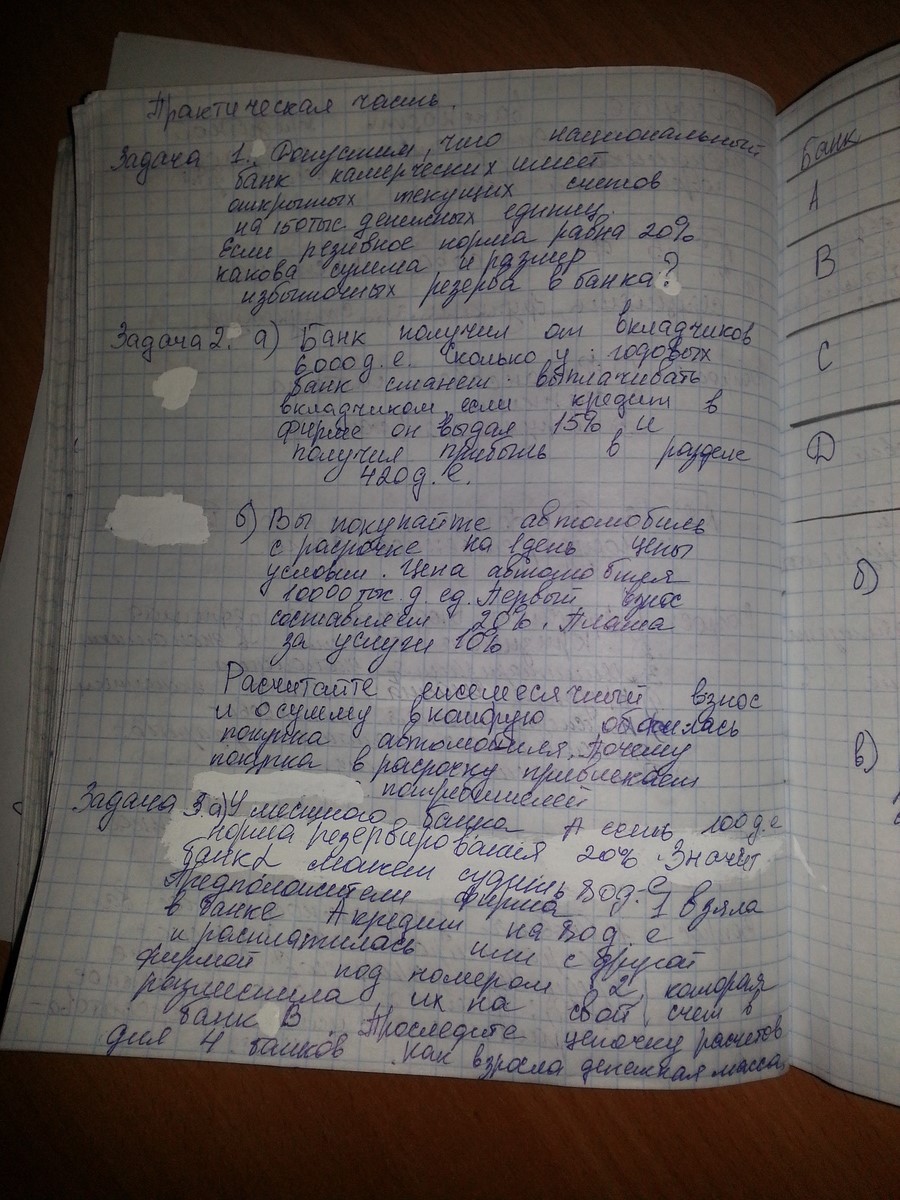 Практическая часть.
Задача 1. Допустим, что национальный
банк камерческих имеет
открытых текущих счетов
на 150тыс. денежных единиц
Если резивное норма равна 20%
какова сумма и размер
избыточных резерва в банка?
Задача 2. а) Банк получил от вкладчиков
6000д.е. Сколько у. годовых
банк станет выплачивать
вкладчиком если кредит в
фирме он выдал 15% и
получил прибыль в разделе
420д.е.
б) Вы покупайте автомобиль
с расрочке на 1день цены
условии. Цена автомобиля
10000 д. ед. Первый взнос
составляет 20%. Плата
за услуги 10%
Расчитайте ежемесячный взнос
и о сумму в которую обошлась
покупка автомобиля. Почему
покупка в расрочку привлекает
потребителей
Задача 3.а) У местного банка А есть 100д.е
норма резервирования 20%. Значит
банк может 80д.е
фирма 1 взяла
в банке А кредит на 80д.е
и расплатилась или с другой
фирмой под номером 2, которая
разместила их на свой счет в
банк В. Проследите цепочку расчетов
для 4 банков. Как взросла денежная масса
Банк
А
В
С
D
б)
в)